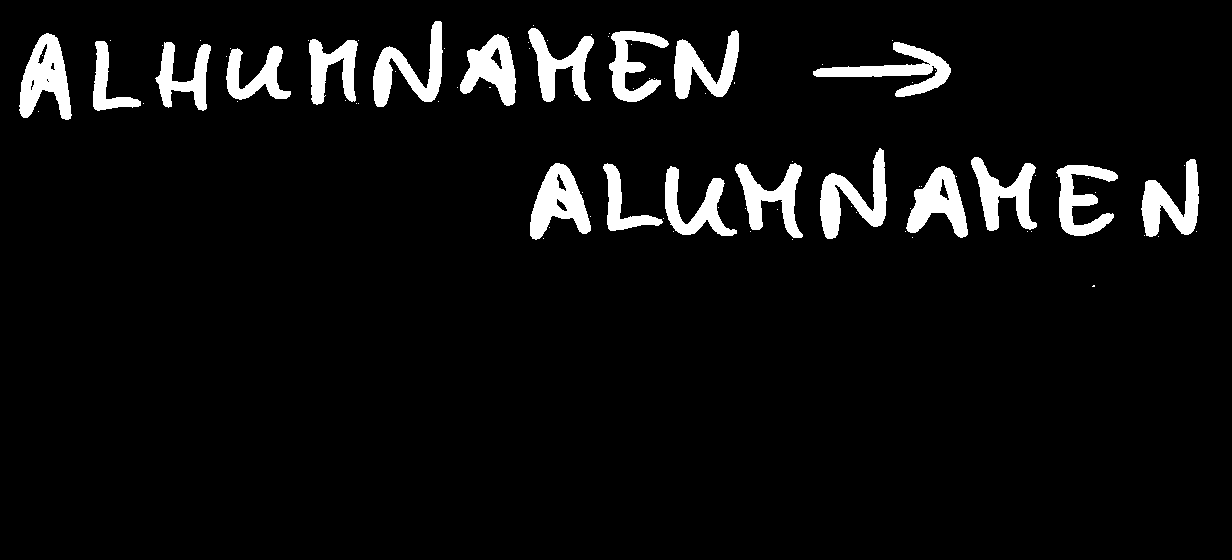 ALHUMNAMEN →
ALUMNAMEN